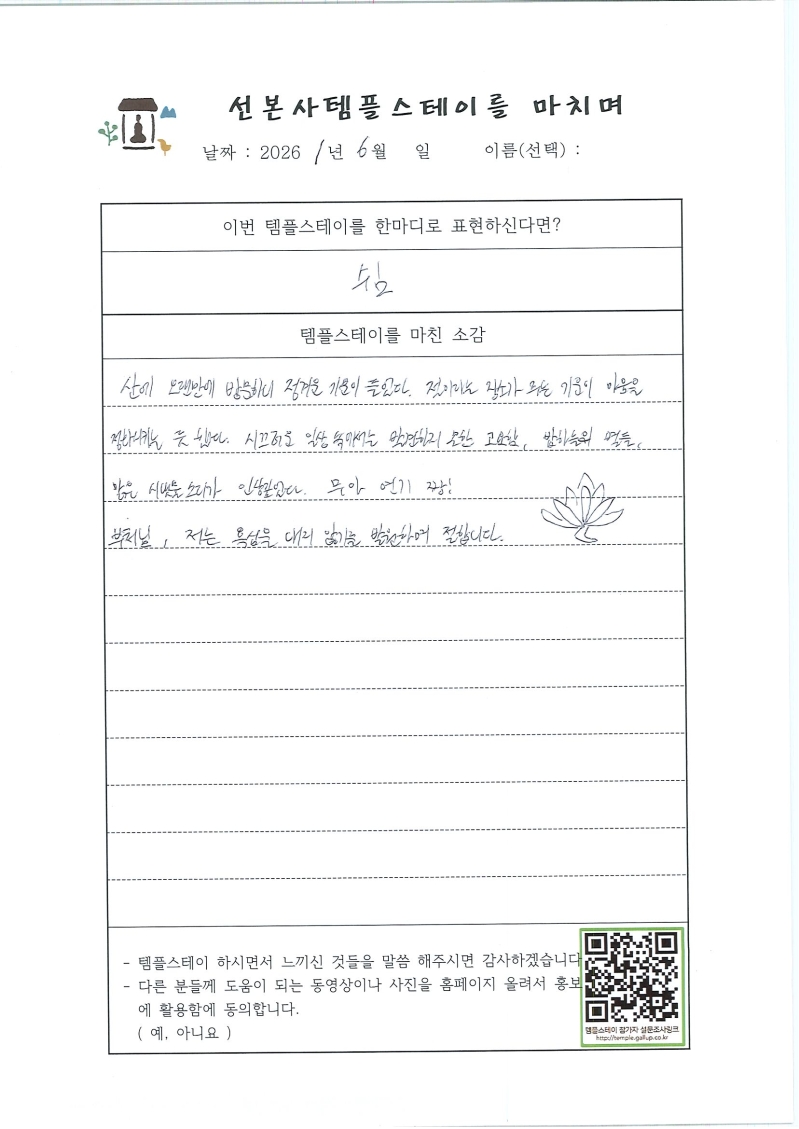 선본사템플스테이를 마치며
날짜 : 2026 1년 6월 일 이름(선택) :
이번 템플스테이를 한마디로 표현하신다면?
쉼
템플스테이를 마친 소감
산에 오랜만에 방문하니 정겨운 기운이 들었다. 절이라는 장소가 주는 기운이 마음을
정화시키는 듯 했다. 시끄러운 일상 속에서는 발견하지 못한 고요함, 밤하늘의 별들,
맑은 시냇물 소리가 인상깊었다. 무아 연기 짱!
부처님, 저는 욕심을 내지 않기를 발원하며 절합니다.
- 템플스테이 하시면서 느끼신 것들을 말씀 해주시면 감사하겠습니다
- 다른 분들께 도움이 되는 동영상이나 사진을 홈페이지 올려서 홍보
에 활용함에 동의합니다.
( 예, 아니요 )
템플스테이 참가자 설문조사링크
http://temple.gallup.co.kr